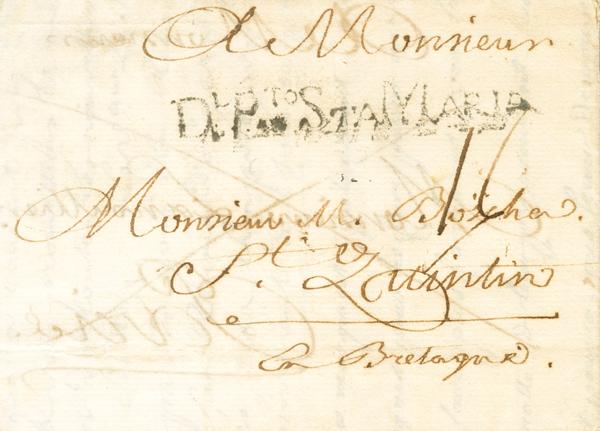 A Monsieur
D.L P.TO STA MARIA
Monsieur M. 
St. Quintin
en Bretagne.